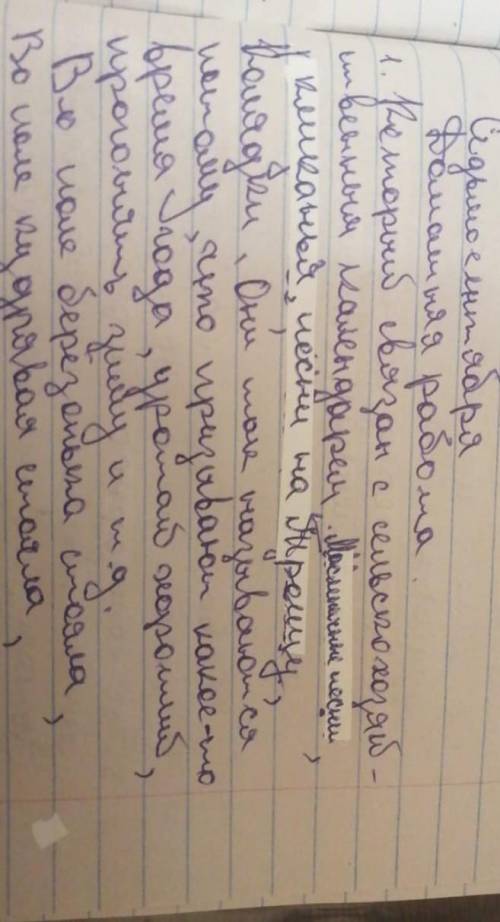 Седьмое сентября
Домашняя работа.
1. Который связан с сельскохозяй-
твенным календарём. Масленичные песни,
кликанья, песни на Троицу,
Колядки. Они так называются
потому, что призывают какое-то
время года, урожай хороший,
прогонять зиму и т.д.
Во поле берёзонька стояла,
Во поле кудрявая стояла,